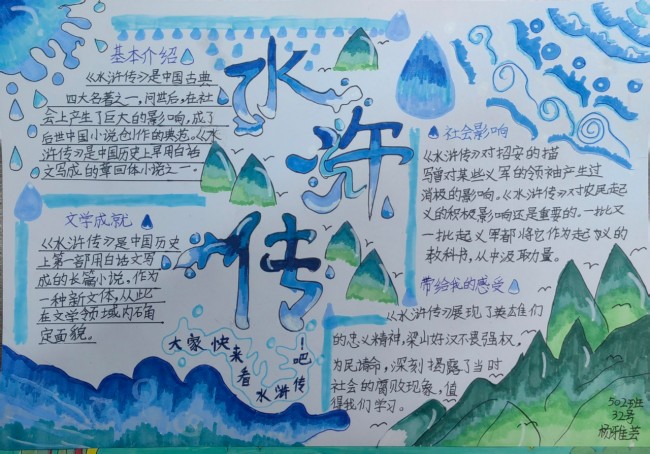 水
浒
传
基本介绍
《水浒传》是中国古典
四大名著之一，问世后，在社
会上产生了巨大的影响，成了
后世中国小说创作的典范。《水
浒传》是中国历史上早用白话
文写成的章回体小说之一．
文学成就
《水浒传》是中国历史
上第一部用白话文写
成的长篇小说，作为
一种新文体，从此
在文学领域内确
定面貌。
社会影响
《水浒传》对招安的描
写曾对某些义军的领袖产生过
消极的影响。《水浒传》对农民起
义的积极影响还是重要的．一批又
一批起义军都将它作为起义的
教科书，从中汲取力量。
带给我的感受
《水浒传》展现了英雄们
的忠义精神，梁山好汉不畏强权，
为民请命，深刻揭露了当时
社会的腐败现象，值
得我们学习。
大家快来看水浒传吧！
502班
32号